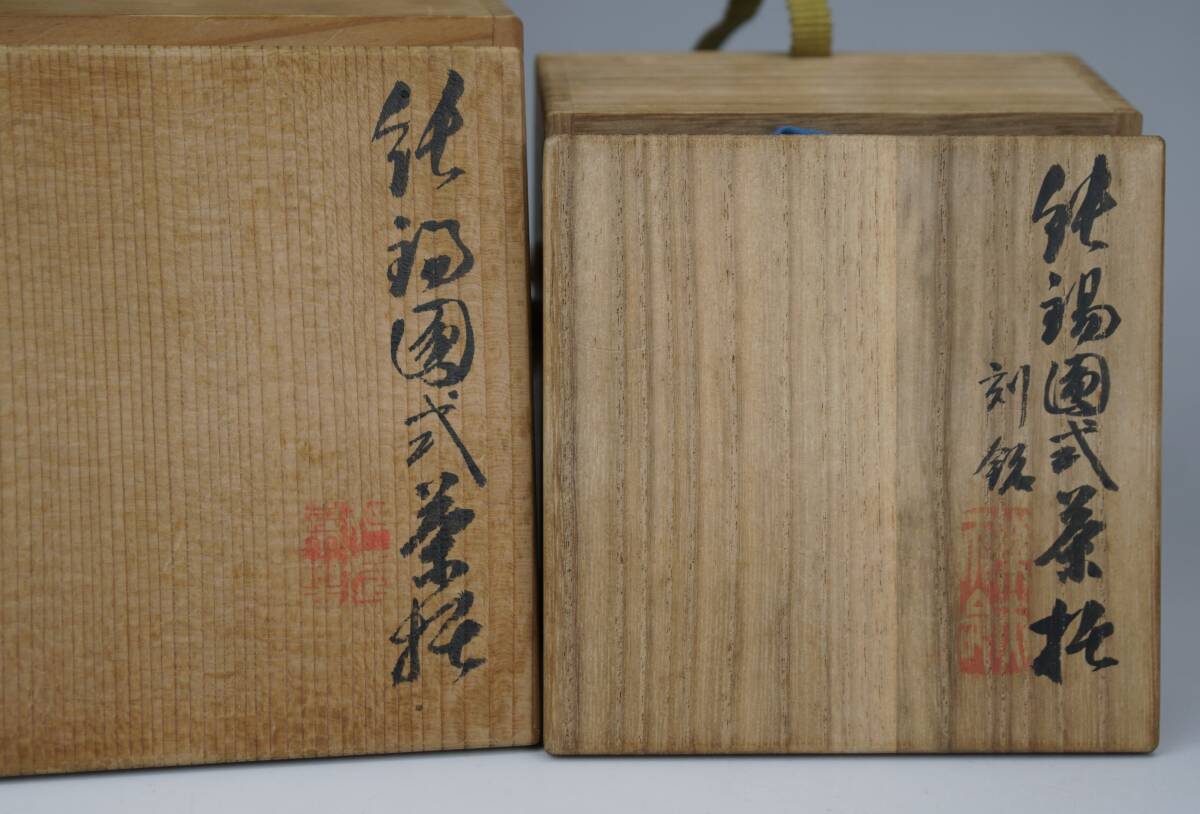 純錫圓式茶托
純錫圓式茶托
刻銘